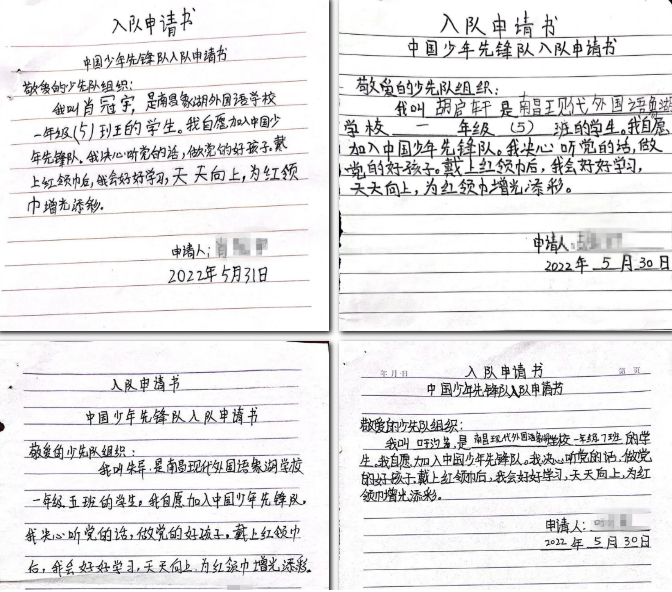 入队申请书
中国少年先锋队入队申请书
敬爱的少先队组织：
我叫肖冠宇，是南昌象湖外国语学校
一年级（5）班的学生。我自愿加入中国少
年先锋队。我决心听党的话，做党的好孩子。戴
上红领巾后，我会好好学习，天天向上，为红领
巾增光添彩。
申请人：肖
2022年5月31日
入队申请书
中国少年先锋队入队申请书
敬爱的少先队组织：
我叫 胡启轩 是南昌现代外国语象湖
学校 一 年级 （5） 班的学生。我自愿
加入中国少年先锋队。我决心听党的话，做
党的好孩子。戴上红领巾后，我会好好学习，
天天向上，为红领巾增光添彩。
申请人
2022 年 5 月 30 日
入队申请书
中国少年先锋队入队申请书
敬爱的少先队组织：
我叫朱异，是南昌现代外国语象湖学校
一年级五班的学生。我自愿加入中国少年先锋队。
我决心听党的话，做党的好孩子。戴上红领巾
后，我会好好学习，天天向上，为红领巾增光添彩。
年 月 日 第 页
入队申请书
中国少年先锋队入队申请书
敬爱的少先队组织：
我叫 是 南昌现代外国语象湖学校一年级7班 的学
生。我自愿加入中国少年先锋队。我决心听党的话，做党
的好孩子。戴上红领巾后，我会好好学习，天天向上，为红
领巾增光添彩。
申请人：
2022 年 5 月 30日